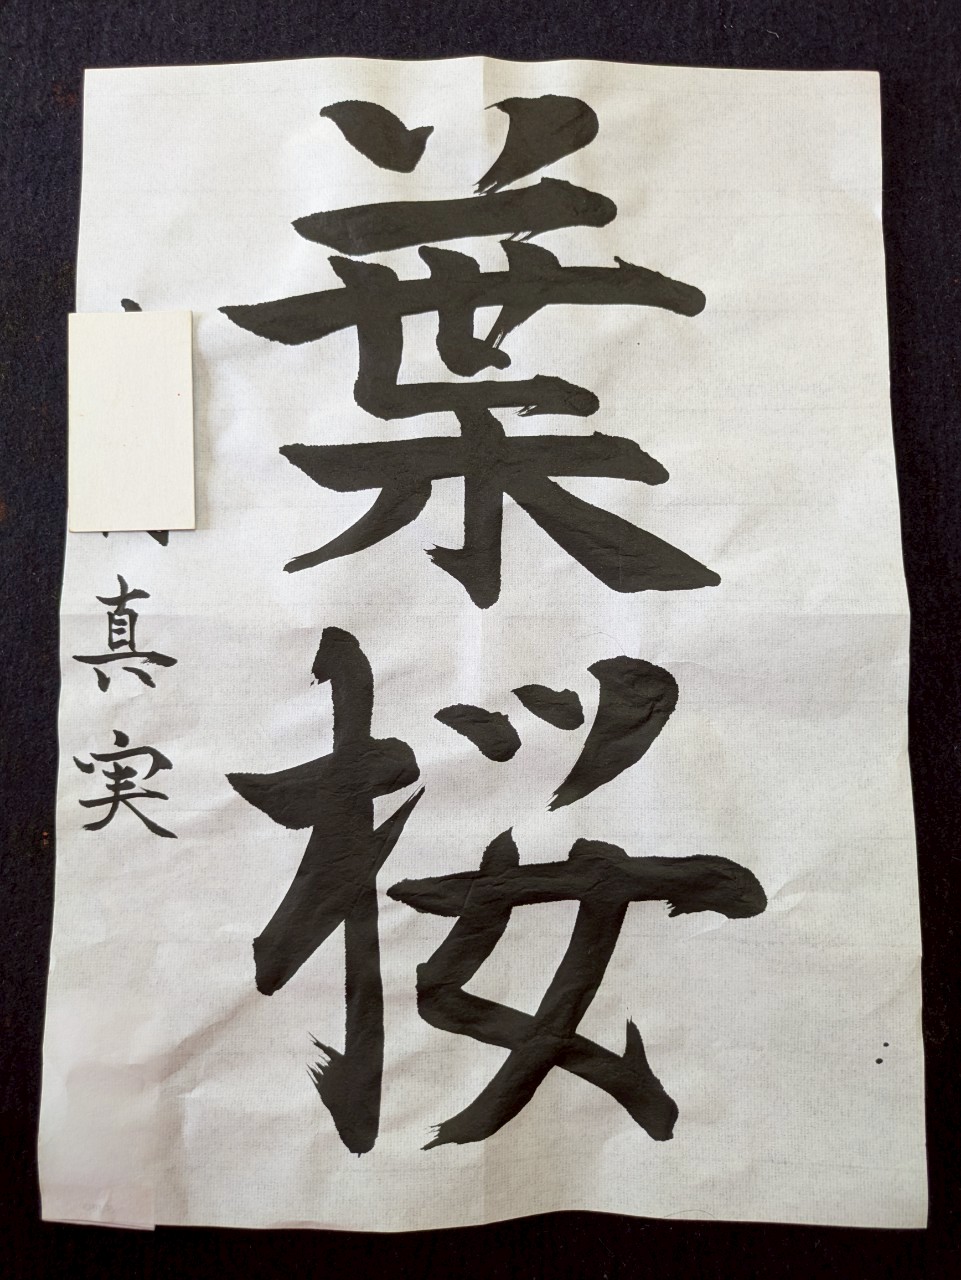 葉桜
真実